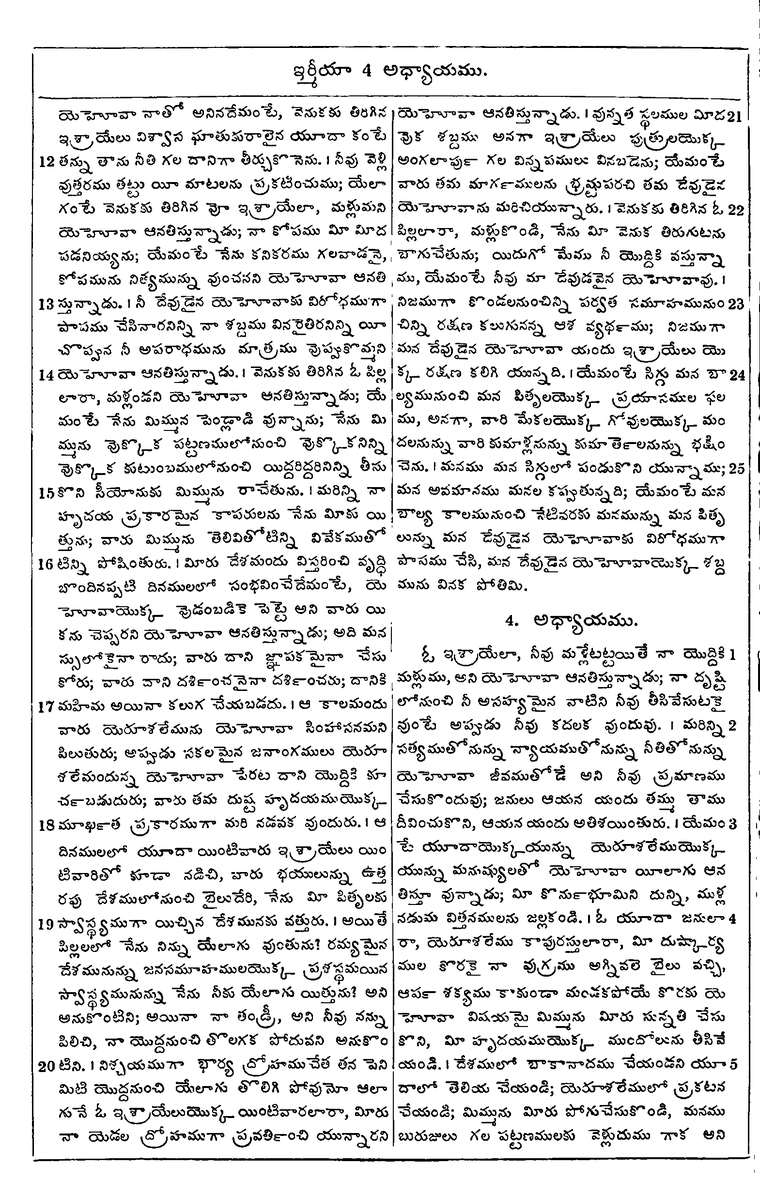 ఇర్మీయా 4 అధ్యాయము.
యెహోవా నాతో అనినదేమంటే, వెనుకకు తిరిగిన
ఇశ్రాయేలు విశ్వాస ఘాతుకురాలైన యూదా కంటే
12 తన్ను తాను నీతి గల దానిగా తీర్చుకొనెను. । నీవు వెళ్లి
వుత్తరము తట్టు యీ మాటలను ప్రకటించుము; యేలా
గంటే వెనుకకు తిరిగిన వో ఇశ్రాయేలా, మళ్లుమని
యెహోవా ఆనతిస్తున్నాడు; నా కోపము మీ మీద
పడనియ్యను; యేమంటే నేను కనికరము గలవాడనై,
కోపమును నిత్యమున్ను వుంచనని యెహోవా ఆనతి
13 స్తున్నాడు. । నీ దేవుడైన యెహోవాకు విరోధముగా
పాపము చేసినారనిన్ని నా శబ్దము వినరైతిరనిన్ని యీ
చొప్పున నీ అపరాధమును మాత్రము వొప్పుకొమ్మని
14 యెహోవా ఆనతిస్తున్నాడు. । వెనుకకు తిరిగిన ఓ పిల్ల
లారా, మళ్లండని యెహోవా ఆనతిస్తున్నాడు; యే
మంటే నేను మిమ్మున పెండ్లాడి వున్నాను; నేను మి
మ్మును వొక్కొక పట్టణములోనుంచి వొక్కొకనిన్ని
వొక్కొక కుటుంబములోనుంచి యిద్దరిద్దరినిన్ని తీసు
15 కొని సీయోనుకు మిమ్మును రాచేతును. । మరిన్ని నా
హృదయ ప్రకారమైన కాపరులను నేను మీకు యి
త్తును; వారు మిమ్మును తెలివితోటిన్ని వివేకముతో
16 టిన్ని పోషింతురు. । మీరు దేశమందు విస్తరించి వృద్ధి
బొందినప్పటి దినములలో సంభవించేదేమంటే, యె
హోవాయొక్క వొడంబడికె పెట్టె అని వారు యి
కను చెప్పరని యెహోవా ఆనతిస్తున్నాడు; అది మన
స్సులోకైనా రాదు; వారు దాని జ్ఞాపకమైనా చేసు
కోరు; వారు దాని దర్శించనైనా దర్శించరు; దానికి
17 మహిమ అయినా కలుగ చేయబడదు. । ఆ కాలమందు
వారు యెరూశలేమును యెహోవా సింహాసనమని
పిలుతురు; అప్పుడు సకలమైన జనాంగములు యెరూ
శలేమందున్న యెహోవా పేరట దాని యొద్దికి కూ
ర్చబడుదురు; వారు తమ దుష్ట హృదయముయొక్క
18 మూర్ఖత ప్రకారముగా మరి నడవక వుందురు. । ఆ
దినములలో యూదా యింటివారు ఇశ్రాయేలు యిం
టివారితో కూడా నడిచి, వారు భయులున్ను ఉత్త
రపు దేశములోనుంచి బైలుదేరి, నేను మీ పితృలకు
19 స్వాస్థ్యముగా యిచ్చిన దేశమునకు వత్తురు. । అయితే
పిల్లలలో నేను నిన్ను యేలాగు వుంతును? రమ్యమైన
దేశమునున్ను జనసమూహములయొక్క ప్రశస్థమయిన
స్వాస్థ్యమునున్ను నేను నీకు యేలాగు యిత్తును? అని
అనుకొంటిని; అయినా నా తండ్రీ, అని నీవు నన్ను
పిలిచి, నా యొద్దనుంచి తొలగక పోదువని అనుకొం
20 టిని. । నిశ్చయముగా భార్య ద్రోహముచేత తన పెని
మిటి యొద్దనుంచి యేలాగు తొలిగి పోవునో ఆలా
గునే ఓ ఇశ్రాయేలుయొక్క యింటివారలారా, మీరు
నా యెడల ద్రోహముగా ప్రవర్తించి యున్నారని
యెహోవా ఆనతిస్తున్నాడు. । వున్నత స్థలముల మీద 21
వొక శబ్దము అనగా ఇశ్రాయేలు పుత్రులయొక్క
అంగలార్పు గల విన్నపములు వినబడెను; యేమంటే
వారు తమ మార్గములను భ్రష్టుపరచి తమ దేవుడైన
యెహోవాను మరిచియున్నారు. । వెనుకకు తిరిగిన ఓ 22
పిల్లలారా, మళ్లుకొండి, నేను మీ వెనుక తిరుగుటను
బాగుచేతును; యిదుగో మేము నీ యొద్దికి వస్తున్నా
ము, యేమంటే నీవు మా దేవుడవైన యెహోవావు. ।
నిజముగా కొండలనుంచిన్ని పర్వత సమూహమునుం 23
చిన్ని రక్షణ కలుగునన్న ఆశ వ్యర్థము; నిజముగా
మన దేవుడైన యెహోవా యందు ఇశ్రాయేలు యొ
క్క రక్షణ కలిగి యున్నది. । యేమంటే సిగ్గు మన బా 24
ల్యమునుంచి మన పితృలయొక్క ప్రయాసముల ఫల
ము, అనగా, వారి మేకలయొక్క గోవులయొక్క మం
దలనున్ను వారి కుమాళ్లనున్ను కుమార్తెలనున్ను భక్షిం
చెను. । మనము మన సిగ్గులో పండుకొని యున్నాము; 25
మన అవమానము మనల కప్పుతున్నది; యేమంటే మన
బాల్య కాలమునుంచి నేటివరకు మనమున్ను మన పితృ
లున్ను మన దేవుడైన యెహోవాకు విరోధముగా
పాపము చేసి, మన దేవుడైన యెహోవాయొక్క శబ్ద
మును వినక పోతిమి.
4. అధ్యాయము.
ఓ ఇశ్రాయేలా, నీవు మళ్లేటట్టయితే నా యొద్దికి 1
మళ్లుము, అని యెహోవా ఆనతిస్తున్నాడు; నా దృష్టి
లోనుంచి నీ అసహ్యమైన నాటిని నీవు తీసివేసుటకై
వుంటే అప్పుడు నీవు కదలక వుందువు. । మరిన్ని 2
సత్యముతోనున్ను న్యాయముతోనున్ను నీతితోనున్ను
యెహోవా జీవముతోడే అని నీవు ప్రమాణము
చేసుకొందువు; జనులు ఆయన యందు తమ్ము తాము
దీవించుకొని, ఆయన యందు అతిశయింతురు. । యేమం 3
టే యూదాయొక్కయున్ను యెరూశలేముయొక్క
యున్ను మనుష్యులతో యెహోవా యీలాగు ఆన
తిస్తూ వున్నాడు; మీ కొనుర్భూమిని దున్ని, ముళ్ల
నడుమ విత్తనములను జల్లకండి. । ఓ యూదా జనులా 4
రా, యెరూశలేము కాపురస్తులారా, మీ దుష్కార్య
ముల కొరకై నా వుగ్రము అగ్నివలె బైలు వచ్చి,
ఆర్ప శక్యము కాకుండా మండకపోయే కొరకు యె
హోవా విషయమై మిమ్మును మీరు సున్నతి చేసు
కొని, మీ హృదయముయొక్క ముందోలును తీసివే
యండి. । దేశములో బాకానాదము చేయండని యూ 5
దాలో తెలియ చేయండి; యెరూశలేములో ప్రకటన
చేయండి; మిమ్మును మీరు పోగుచేసుకొండి, మనము
బురుజులు గల పట్టణములకు వెళ్లుదుము గాక అని